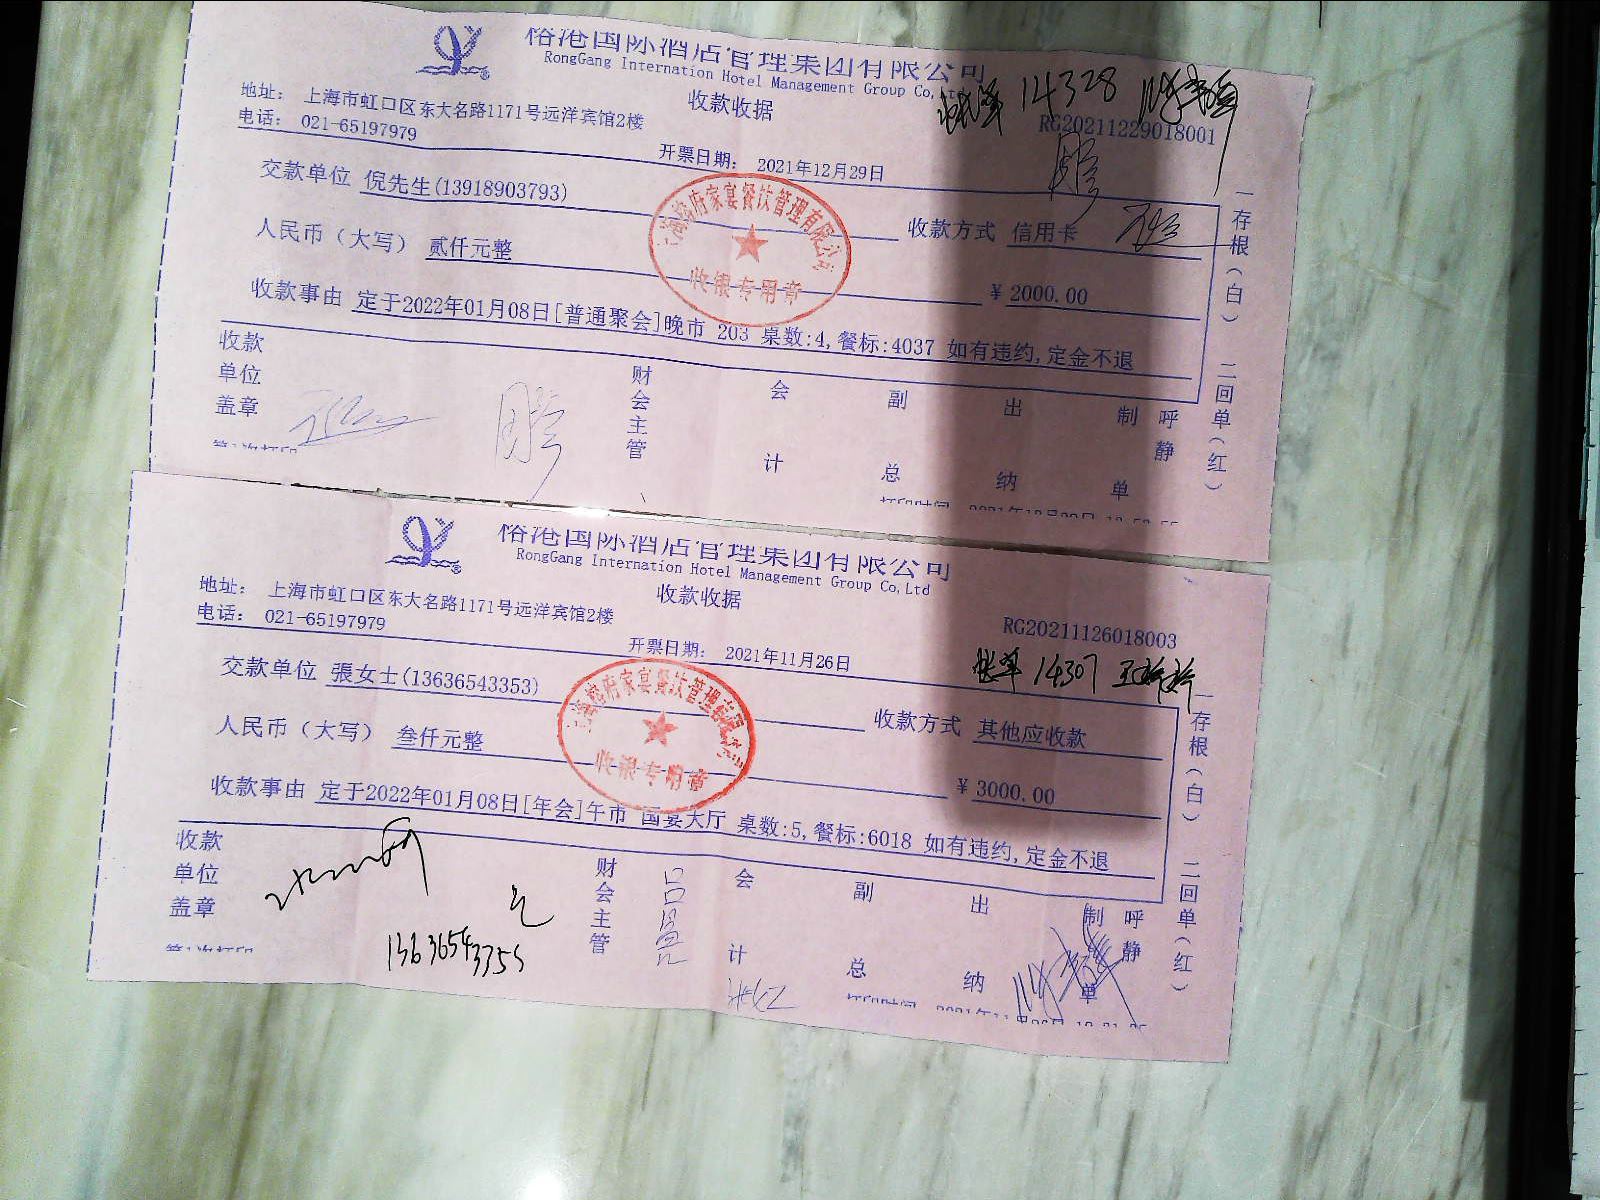 裕港国际酒店管理集团有限公司
RongGang International Hotel Management Group Co,Ltd
收款收据
14328
地址： 上海市虹口区东大名路1171号远洋宾馆2楼
电话： 021-65197979
RG20211229018001
开票日期： 2021年12月29日
交款单位 倪先生(13918903793)
收款方式 信用卡
人民币（大写） 贰仟元整
￥2000.00
收款事由 定于2022年01月08日[普通聚会]晚市 203 桌数:4,餐标:4037 如有违约,定金不退
收款单位盖章
财会主管
会计
副总
出纳
制单
呼静
一存根(白) 二回单(红)
家宴餐饮管理有限公司
收银专用章
裕港国际酒店管理集团有限公司
RongGang International Hotel Management Group Co,Ltd
收款收据
地址： 上海市虹口区东大名路1171号远洋宾馆2楼
电话： 021-65197979
RG20211126018003
开票日期： 2021年11月26日
14307
交款单位 張女士(13636543353)
收款方式 其他应收款
人民币（大写） 叁仟元整
￥3000.00
收款事由 定于2022年01月08日[年会]午市 国宴大厅 桌数:5,餐标:6018 如有违约,定金不退
收款单位盖章
财会主管
会计
副总
出纳
制单
呼静
一存根(白) 二回单(红)
府家宴餐饮管理有限
收银专用章